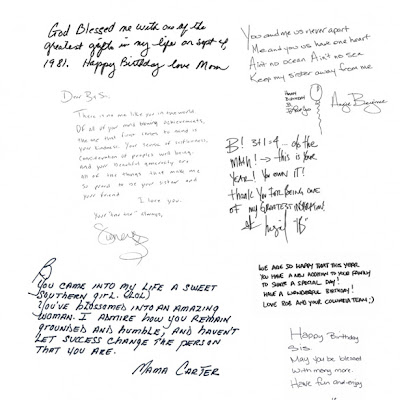 God Blessed me with one of the
greatest gifts in my life on Sept 4,
1981. Happy Birthday love Mom
You and me us never apart
Me and you us have one heart
Ain't no ocean Ain't no sea
Keep my sister away from me
Happy
Birthday
Angie Beyince
Dear Big Sis,
There is no one like you in the world.
Of all of your mind blowing achievements,
the one that first comes to mind is
your kindness. Your sense of selflessness,
consideration of people's well being.
And your beautiful generosity are
all of the things that make me
so proud to be your sister and
your friend.
I love you.
Always,
B! 3+1=4 do the
MATH! → this is your
YEAR! You OWN IT!
thank you for being one
of my GREATEST INSPIRATIONS.
"B"
B
You came into my life a sweet
Southern girl. (LOL)
You've blossomed into an amazing
woman. I admire how you remain
grounded and humble, and haven't
let success change the person
that you are.
Mama Carter
We are so happy that this year
you have a new addition to your family
to share a special day!
Have a wonderful birthday!
Love Rob and your Columbia team ;)
Happy Birthday
Sis
May you be blessed
with many more.
Have fun and enjoy